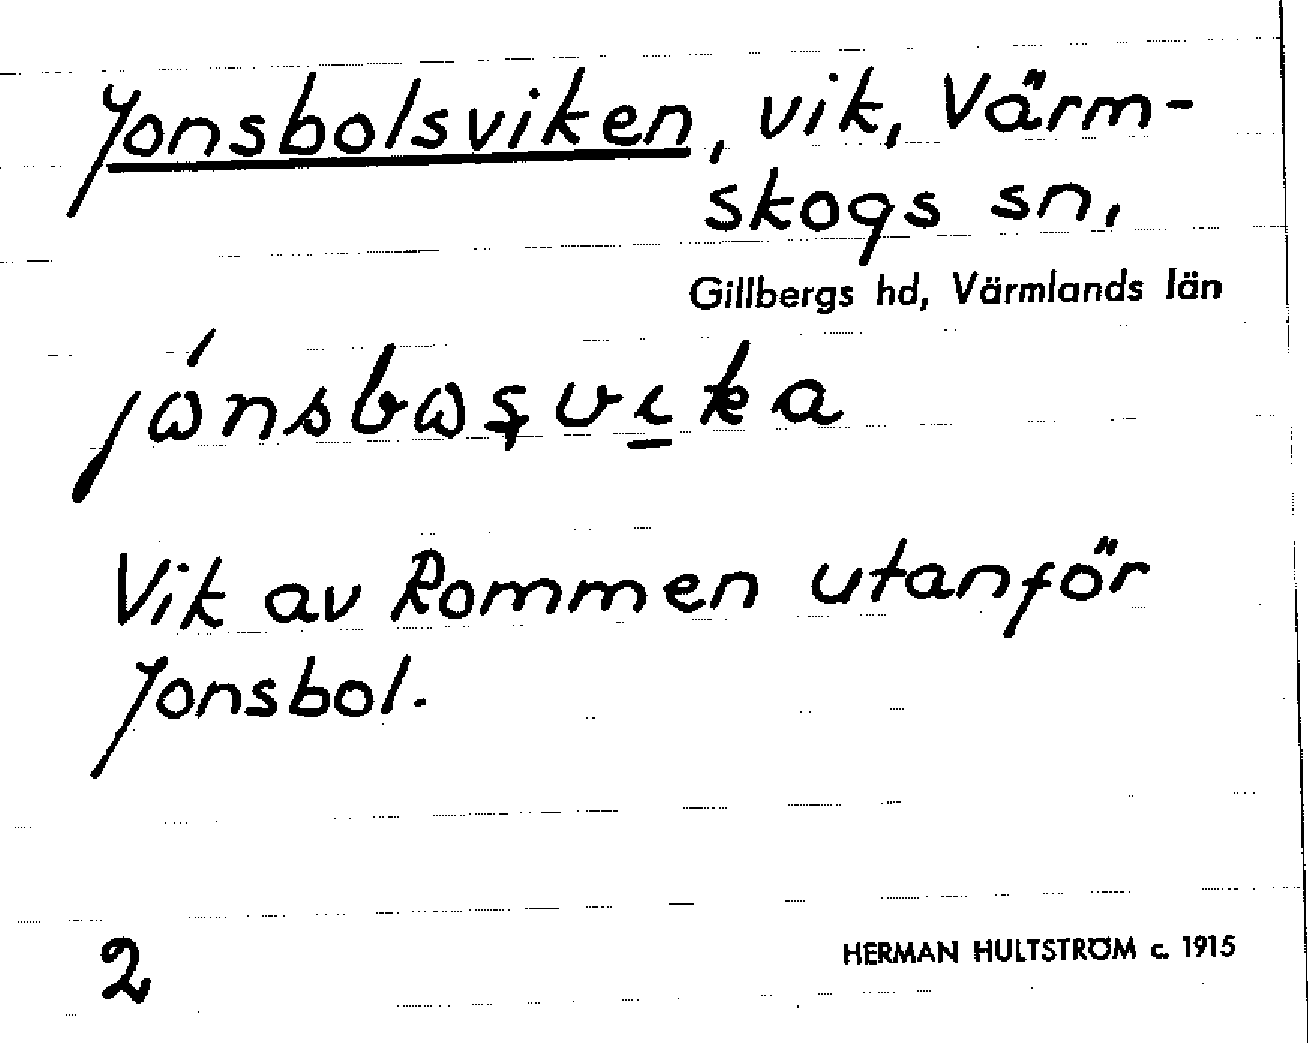 Jonsbolsviken, vik, Värm-
skogs sn,
Gillbergs hd, Värmlands län
Vik av Rommen utanför
Jonsbol.
2
HERMAN HULTSTRÖM c. 1915